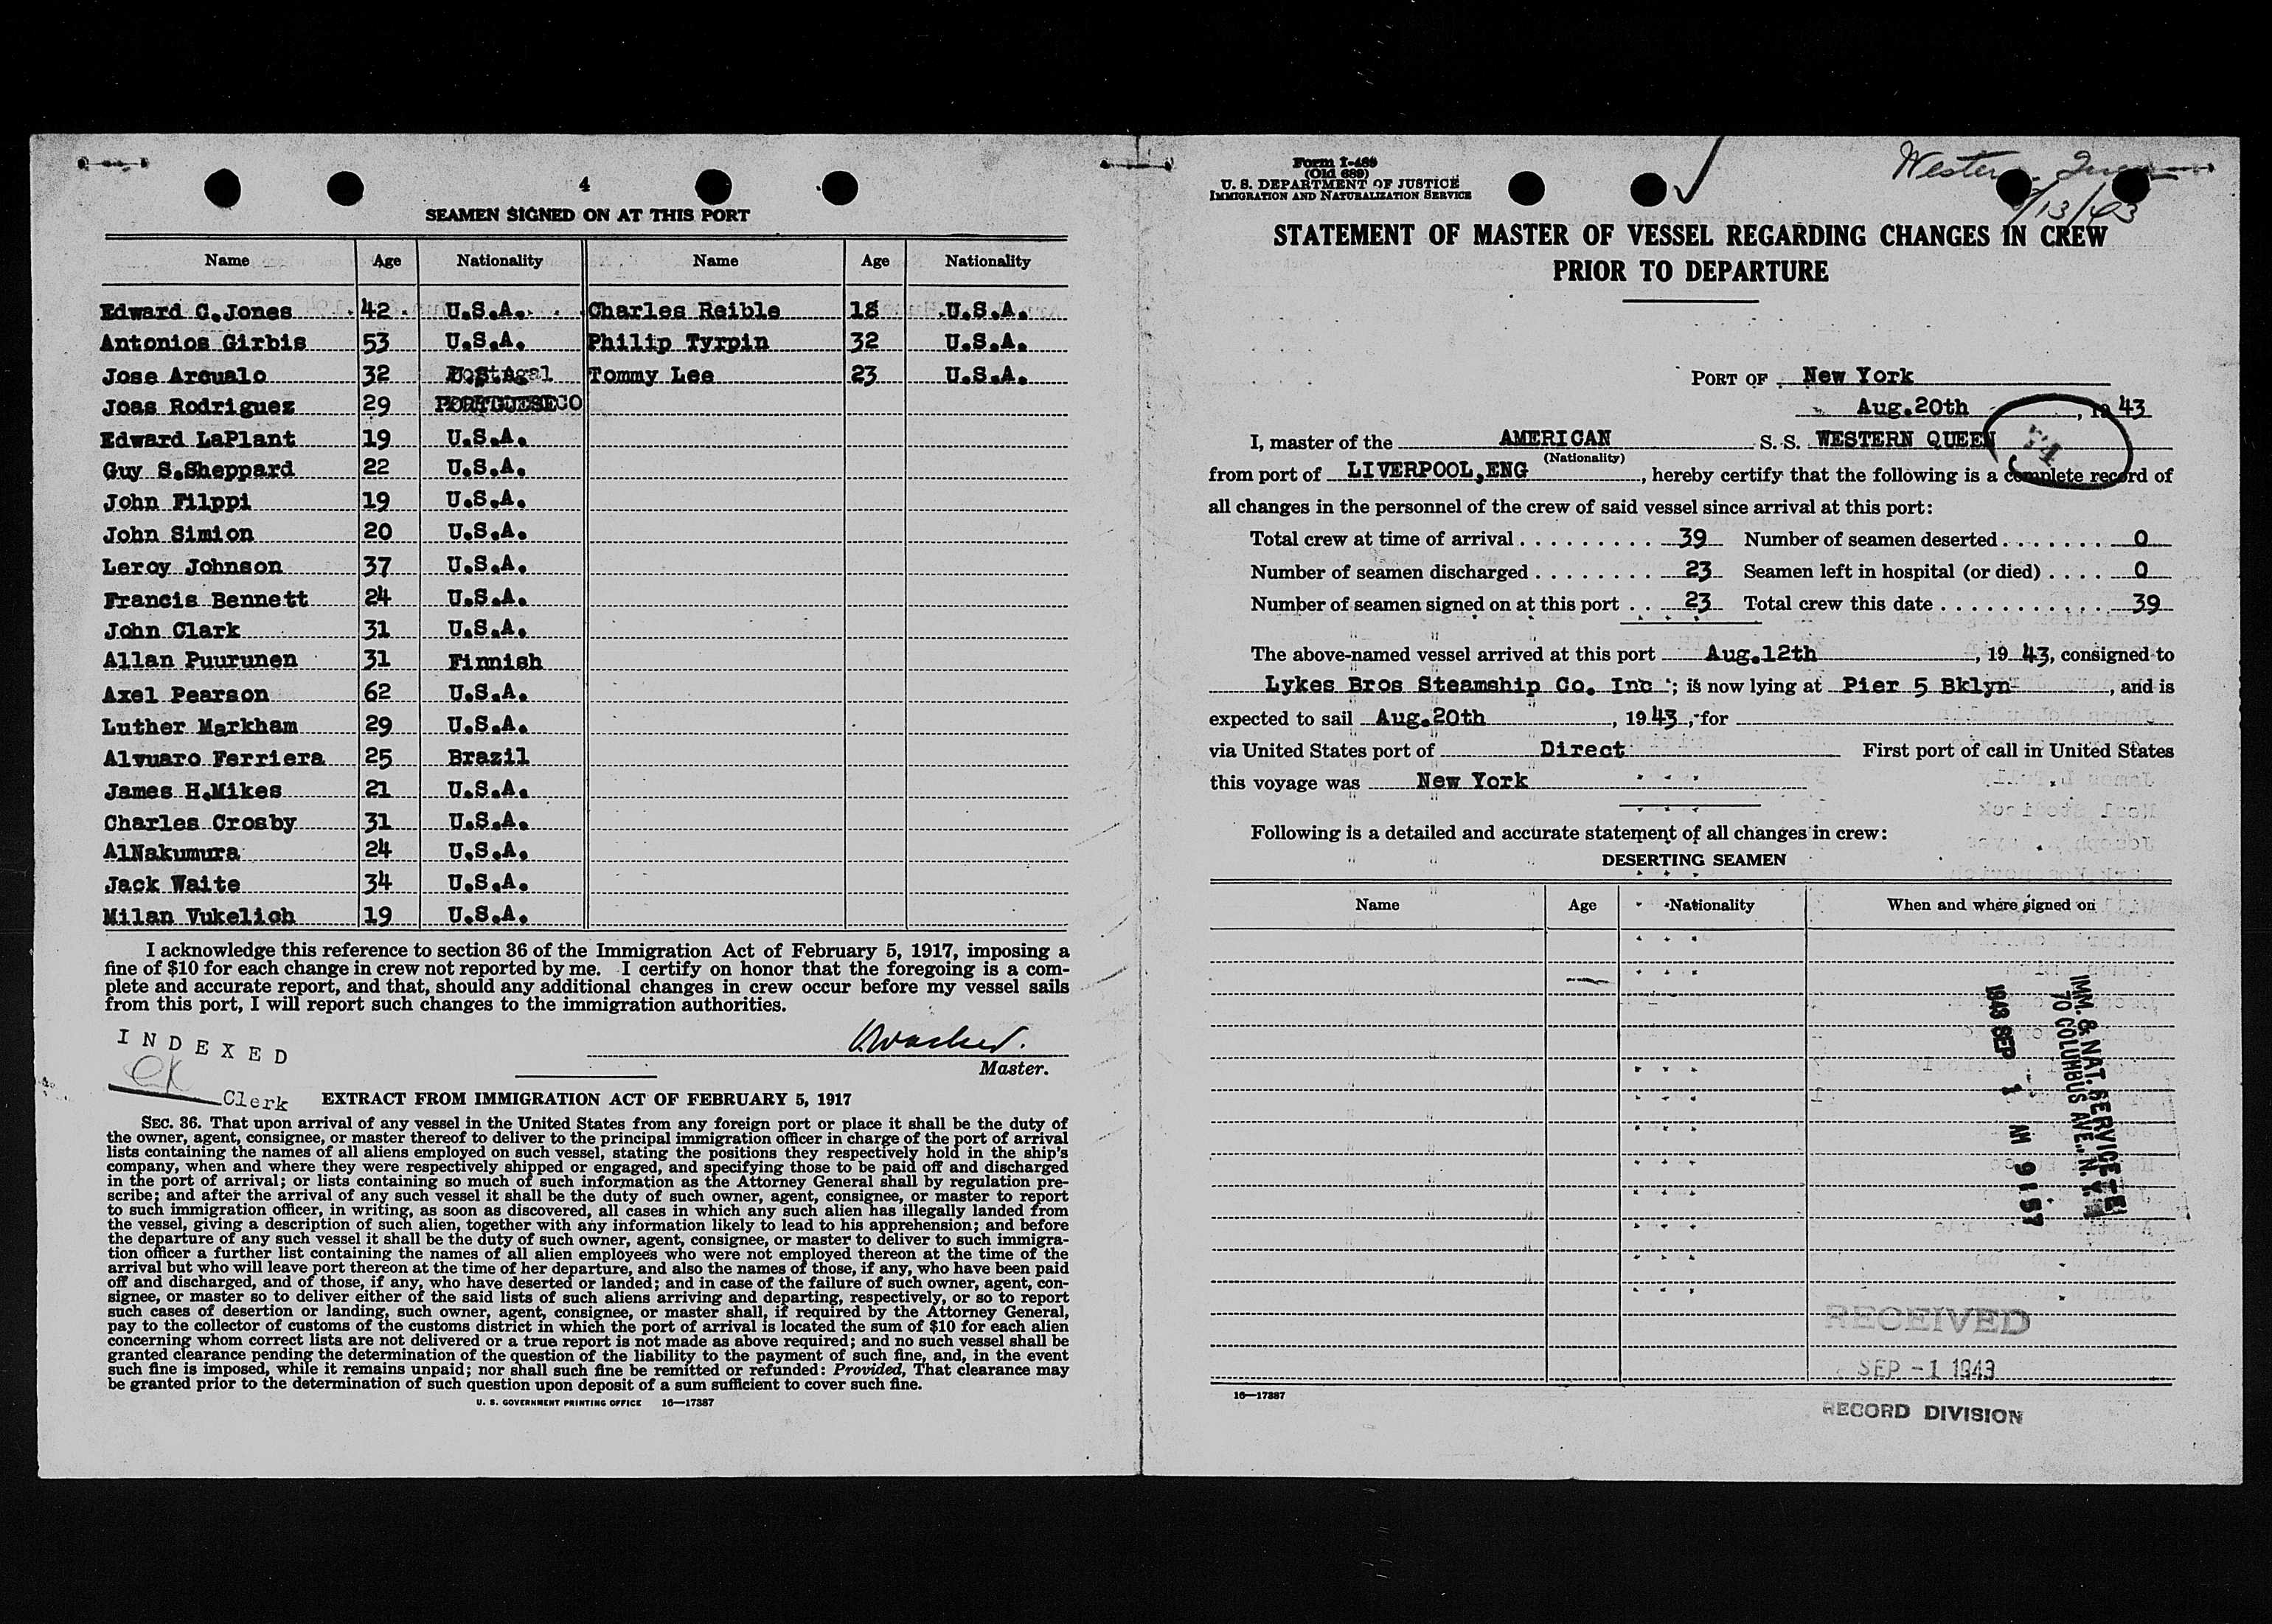 4
SEAMEN SIGNED ON AT THIS PORT
Name Age Nationality Name Age Nationality
Edward C.Jones 42 U.S.A. Charles Reible 18 U.S.A.
Antonios Girbis 53 U.S.A. Philip Tyrpin 32 U.S.A.
Jose Arcualo 32 Tommy Lee 23 U.S.A.
Joas Rodriguez 29
Edward LaPlant 19 U.S.A.
Guy S.Sheppard 22 U.S.A.
John Filppi 19 U.S.A.
John Simion 20 U.S.A.
Leroy Johnson 37 U.S.A.
Francis Bennett 24 U.S.A.
John Clark 31 U.S.A.
Allan Puurunen 31 Finnish
Axel Pearson 62 U.S.A.
Luther Markham 29 U.S.A.
Alvuaro Ferriera 25 Brazil
James H.Mikes 21 U.S.A.
Charles Crosby 31 U.S.A.
AlNakumura 24 U.S.A.
Jack Waite 34 U.S.A.
Milan Vukelich 19 U.S.A.
I acknowledge this reference to section 36 of the Immigration Act of February 5, 1917, imposing a
fine of $10 for each change in crew not reported by me. I certify on honor that the foregoing is a com-
plete and accurate report, and that, should any additional changes in crew occur before my vessel sails
from this port, I will report such changes to the immigration authorities.
INDEXED
Master.
Clerk
EXTRACT FROM IMMIGRATION ACT OF FEBRUARY 5, 1917
SEC. 36. That upon arrival of any vessel in the United States from any foreign port or place it shall be the duty of
the owner, agent, consignee, or master thereof to deliver to the principal immigration officer in charge of the port of arrival
lists containing the names of all aliens employed on such vessel, stating the positions they respectively hold in the ship's
company, when and where they were respectively shipped or engaged, and specifying those to be paid off and discharged
in the port of arrival; or lists containing so much of such information as the Attorney General shall by regulation pre-
scribe; and after the arrival of any such vessel it shall be the duty of such owner, agent, consignee, or master to report
to such immigration officer, in writing, as soon as discovered, all cases in which any such alien has illegally landed from
the vessel, giving a description of such alien, together with any information likely to lead to his apprehension; and before
the departure of any such vessel it shall be the duty of such owner, agent, consignee, or master to deliver to such immigra-
tion officer a further list containing the names of all alien employees who were not employed thereon at the time of the
arrival but who will leave port thereon at the time of her departure, and also the names of those, if any, who have been paid
off and discharged, and of those, if any, who have deserted or landed; and in case of the failure of such owner, agent, con-
signee, or master so to deliver either of the said lists of such aliens arriving and departing, respectively, or so to report
such cases of desertion or landing, such owner, agent, consignee, or master shall, if required by the Attorney General,
pay to the collector of customs of the customs district in which the port of arrival is located the sum of $10 for each alien
concerning whom correct lists are not delivered or a true report is not made as above required; and no such vessel shall be
granted clearance pending the determination of the question of the liability to the payment of such fine, and, in the event
such fine is imposed, while it remains unpaid; nor shall such fine be remitted or refunded: Provided, That clearance may
be granted prior to the determination of such question upon deposit of a sum sufficient to cover such fine.
U. S. GOVERNMENT PRINTING OFFICE 16—17387
Form I-489
(Old 689)
U. S. DEPARTMENT OF JUSTICE
IMMIGRATION AND NATURALIZATION SERVICE
Western Queen
/13/43
STATEMENT OF MASTER OF VESSEL REGARDING CHANGES IN CREW
PRIOR TO DEPARTURE
PORT OF New York
Aug.20th, 1943
I, master of the AMERICAN S. S. WESTERN QUEEN
(Nationality)
from port of LIVERPOOL,ENG, hereby certify that the following is a complete record of
all changes in the personnel of the crew of said vessel since arrival at this port:
Total crew at time of arrival . . . . . . . . . . 39 Number of seamen deserted . . . . . . . 0
Number of seamen discharged . . . . . . . . 23 Seamen left in hospital (or died) . . . . 0
Number of seamen signed on at this port . . 23 Total crew this date . . . . . . . . . . . . 39
The above-named vessel arrived at this port Aug.12th, 1943, consigned to
Lykes Bros Steamship Co. Inc ; is now lying at Pier 5 Bklyn, and is
expected to sail Aug.20th, 1943, for
via United States port of Direct First port of call in United States
this voyage was New York
Following is a detailed and accurate statement of all changes in crew:
DESERTING SEAMEN
Name Age Nationality When and where signed on
IMM. & NAT. SERVICE
70 COLUMBUS AVE., N. Y.
1943 SEP 1 AM 9 57
RECEIVED
SEP -1 1943
16—17387
RECORD DIVISION